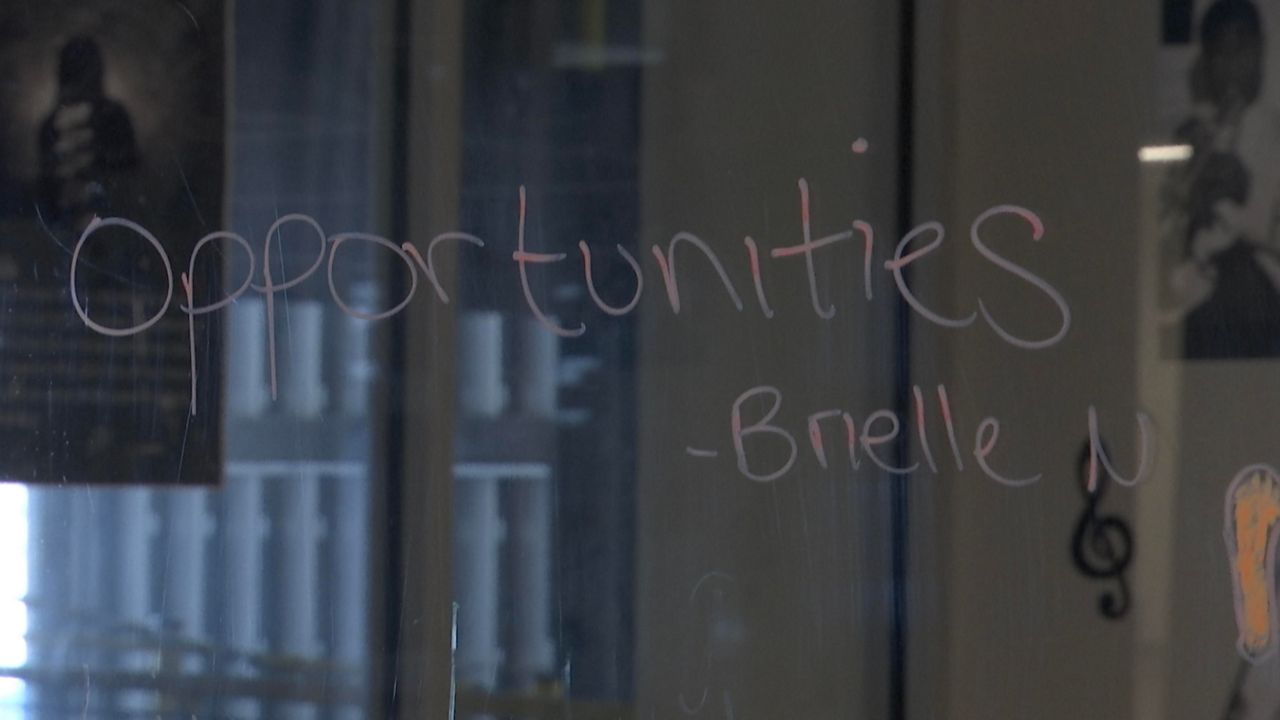 opportunities
-Brielle N